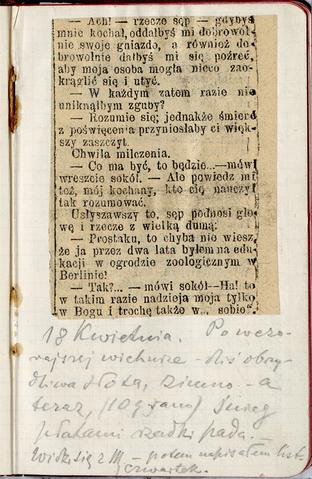 — Ach! — rzecze sęp — gdybyś
mnie kochał, oddałbyś mi dobrowol-
nie swoje gniazdo, a również do-
browolnie dałbyś mi się pożreć,
aby moja osoba mogła nieco zao-
krąglić się i utyć.
— W każdym zatem razie nie
uniknąłbym zguby?
— Rozumie się; jednakże śmierć
z poświęcenia przyniosłaby ci więk-
szy zaszczyt.
Chwila milczenia.
— Co ma być, to będzie...—mówi
wreszcie sokół. — Ale powiedz mi
też, mój kochany, kto cię nauczył
tak rozumować.
Usłyszawszy to, sęp podnosi gło-
wę i rzecze z wielką dumą:
— Prostaku, to chyba nie wiesz,
że ja przez dwa lata byłem na edu-
kacji w ogrodzie zoologicznym w
Berlinie!
— Tak?... — mówi sokół—Ha! to
w takim razie nadzieja moja tylko
w Bogu i trochę także w... sobie".
18 Kwietnia. Po wczo-
rajszej wichurze - dziś obrzy-
dliwa słota, zimno - a
teraz, (10 g. rano) śnieg
płatami rzadki pada. -
Widzę się z M - potem napisałem list
czwartek.